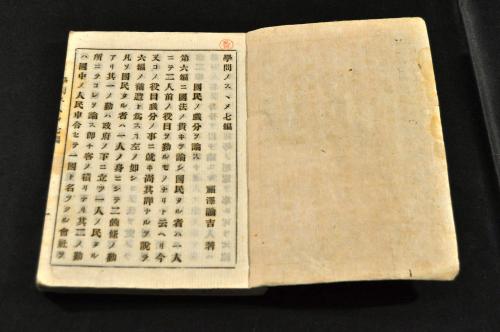 學問ノスヽメ七編
福澤諭吉著
國民ノ職分ヲ論ス
第六編ニ國法ノ貴キヲ論シ國民タル者ハ一人
ニテ二人前ノ役目ヲ勤ルモノナリト云ヘリ今
又コノ役目職分ノ事ニ就キ尚其詳ナルヲ説テ
六編ノ補遺ト爲スヿ左ノ如シ
凡ソ國民タル者ハ一人ノ身ニシテ二箇條ノ勤
アリ其一ノ勤ハ政府ノ下ニ立ツ一人ノ民タル
所ニテコレヲ論ス即チ客ノ積リナリ其二ノ勤
ハ國中ノ人民申合セテ一國ト名ツクル會社ヲ